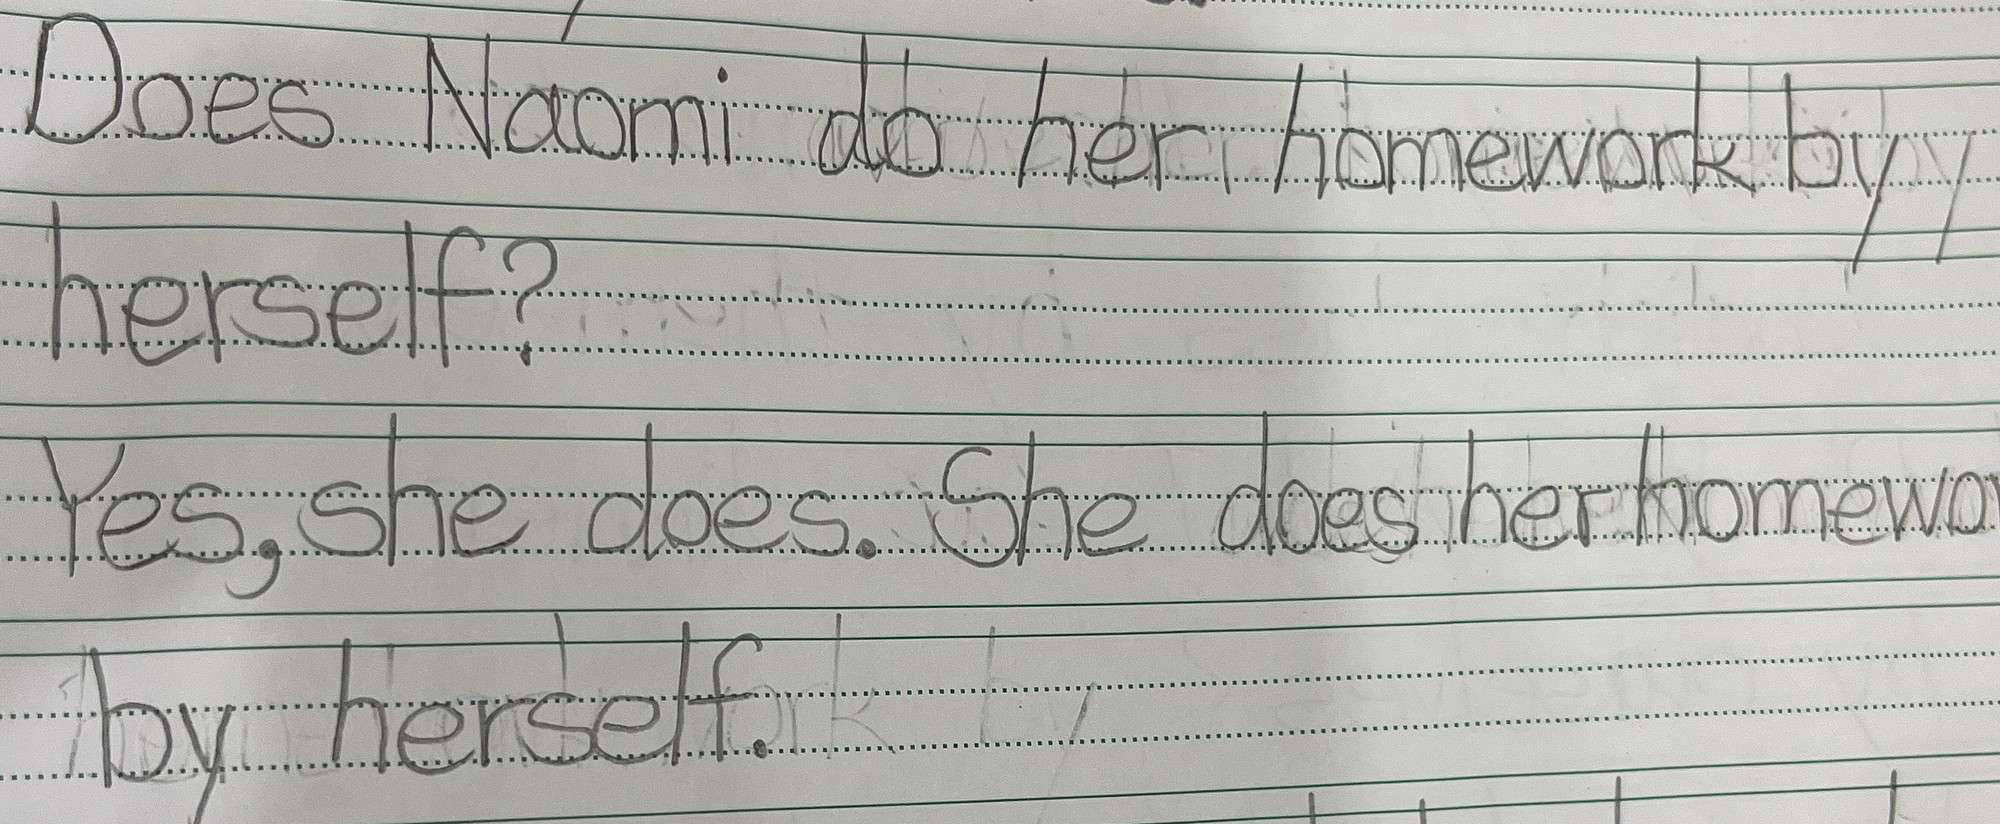 Does Naomi do her homework by
herself?
Yes, she does. She does her homewo
by herself.